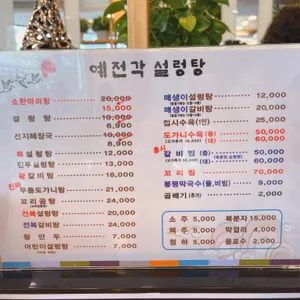 예전각 설렁탕
소한마리탕 20,000
15,000
설 렁 탕 10,000
8,900
선지해장국 10,000
8,900
특설렁탕 13,000
만두설렁탕 13,000
왕갈비탕 18,000
우족도가니탕 21,000
꼬리곰탕 24,000
전복설렁탕 20,000
전복갈비탕 24,000
왕 만 두 7,000
어린이설렁탕 7,000
매생이설렁탕 12,000
매생이갈비탕 20,000
접시수육(1인) 20,000
도가니수육 (중) 50,000
(대) 60,000
갈 비 찜 (중) 50,000
(대) 60,000
꼬리찜 70,000
봉평막국수(물,비빔) 9,000
곱빼기 (추가) 2,000
소 주 5,000 복분자 15,000
맥 주 5,000 막걸리 4,000
청 하 5,000 음료수 2,000